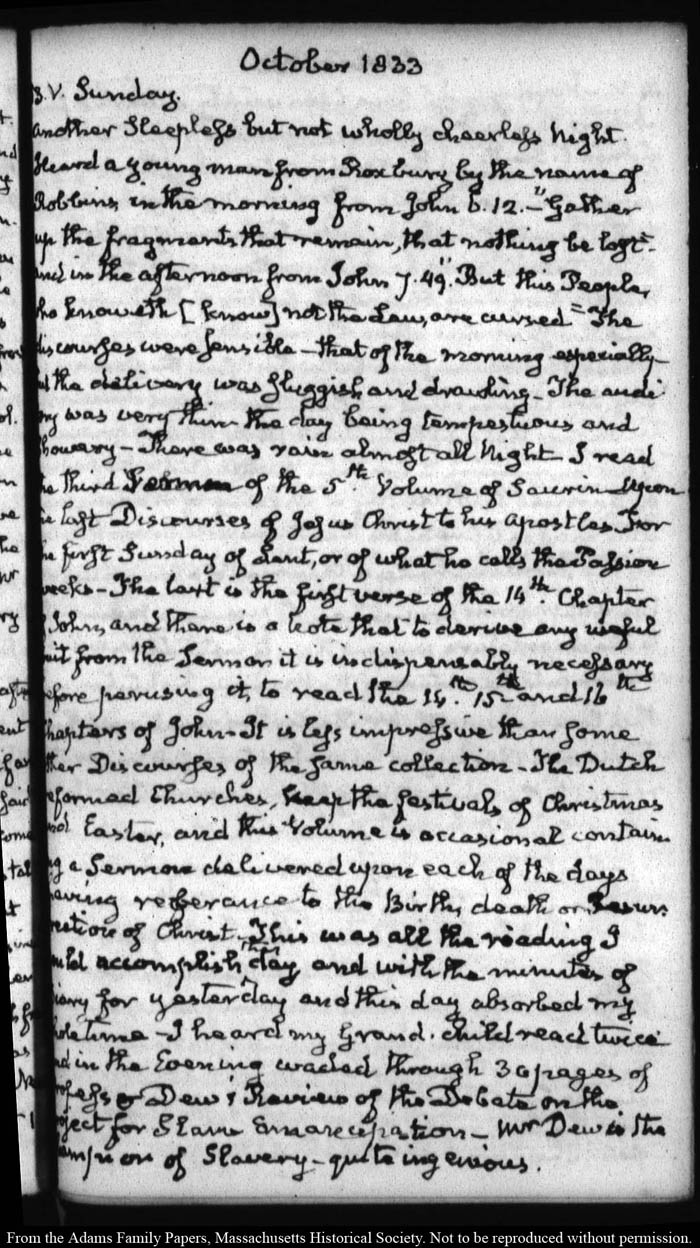 October 1833
3. V. Sunday.
Another Sleepless but not wholly cheerless Night.
Heard a young man from Roxbury by the name of
Robbins, in the morning from John 6. 12. - "Gather
up the fragments that remain, that nothing be lost"-
and in the afternoon from John 7. 49. "But this People,
who knoweth [know] not the Law, are cursed" - The
discourses were sensible - that of the morning especially -
but the delivery was sluggish and drawling - The audi
ory was very thin - the day being tempestuous and
showery - There was rain almost all Night - I read
the third Sermon of the 5th Volume of Saurin - Upon
the last Discourses of Jesus Christ to his apostles For
the first Sunday of Lent, or of what he calls the Passion
weeks - The last is the first verse of the 14th Chapter
of John, and there is a Note that to derive any useful
fruit from the Sermon it is indispensably necessary
before perusing it, to read the 14th 15th and 16th
Chapters of John - It is less impressive than some
other Discourses of the same collection - The Dutch
reformed Churches, keep the festivals of Christmas
and Easter, and this Volume is occasional contain
ing a Sermon delivered upon each of the days
having reference to the Birth, death or Resur
rection of Christ. This was all the reading I
could accomplish this day and with the minutes of
diary for yesterday and this day absorbed my
whole time - I heard my Grand-child read twice
and in the Evening waded through 30 pages of
Professor Dew's Review of the Debate on the
project for Slave Emancipation - Mr Dew is the
champion of Slavery - quite ingenious.
From the Adams Family Papers, Massachusetts Historical Society. Not to be reproduced without permission.